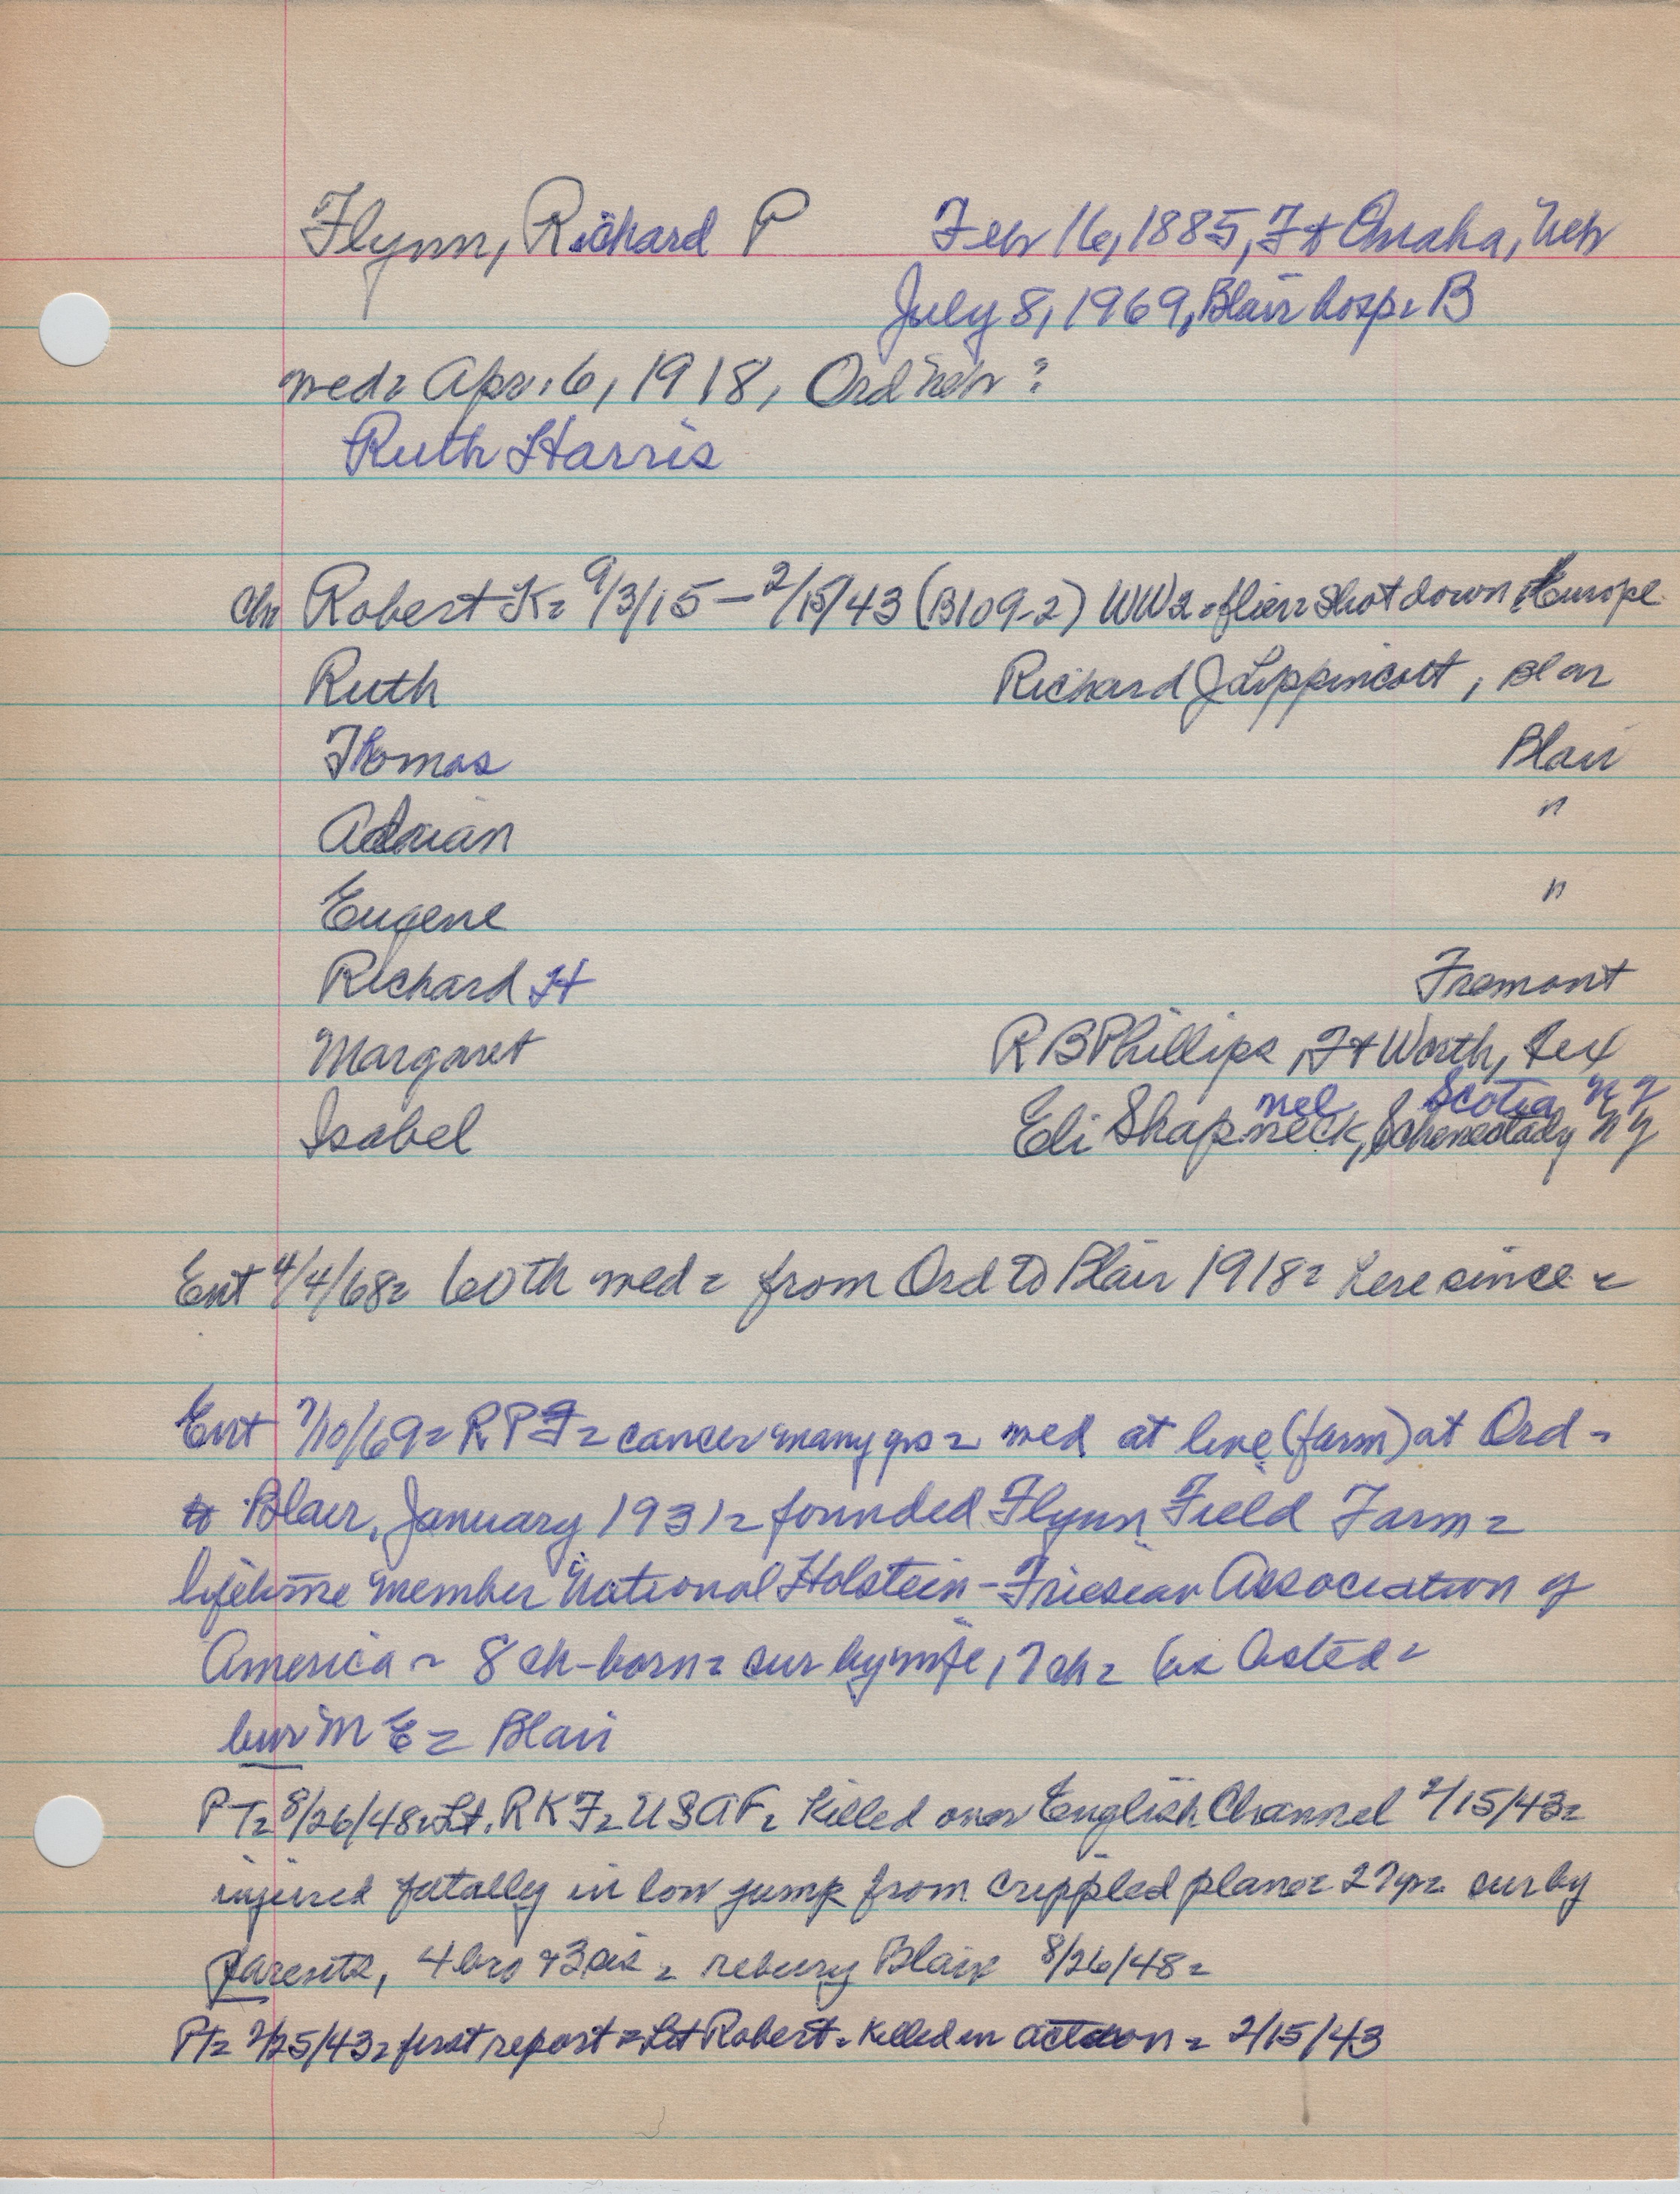 Flynn, Richard P Feb 16, 1885, Ft Omaha, Neb
July 8, 1969, Blair hosp= B
wed= Apr. 6, 1918, Ord Neb ?
Ruth Harris
chn Robert K= 9/3/15 — 2/15/43 (B109-2) WW2 = flier shot down Europe
Ruth Richard J Lippincott, Blair
Thomas Blair
Adrian "
Eugene "
Richard H Fremont
Margaret R B Phillips, Ft Worth, Tex
nel Scotia N Y
Isabel Eli Shapneck, Schenectady N Y
Ent 4/4/68= 60th wed= from Ord to Blair 1918= here since =
Ent 7/10/69= R P F= cancer many yrs= wed at (farm) at Ord =
to Blair, January 1931= founded Flynn Field Farm=
lifetime member National Holstein-Friesian Association of
America = 8 ch-born= sur by wife, 7 ch= as listed=
bur M E= Blair
PT= 8/26/48= Lt. R K F= USAF= Killed over English Channel 2/15/43=
injured fatally in low jump from crippled plane= 27 yr= sur by
parents, 4 bro & 3 sis = rebury Blair 8/26/48=
PT= 2/25/43= first report = Lt Robert = killed in action = 2/15/43